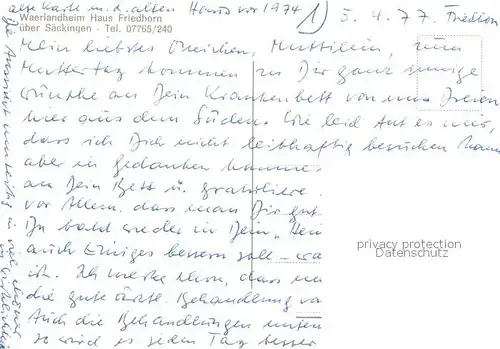 alte Karte m. d. alten Haus vor 1974
1) 5. 4. 77. Friedhorn
Waerlandheim Haus Friedhorn
über Säckingen - Tel. 07765/240
Mein liebstes Omichen, Muttilein, zum
Muttertag kommen zu Dir ganz innige
Wünsche an Dein Krankenbett von uns Dreien
hier aus dem Süden. Wie leid tut es mir,
dass ich Dich nicht leibhaftig besuchen kann
aber in Gedanken komme
an Dein Bett u. gratuliere
vor Allem, dass man Dir gut
Du bald wieder in Dein "Heim
auch Einiges bessern soll - wa
ist. Ich merke schon, dass
die gute ärztl. Behandlung vo
Auch die Behandlungen unten
so wird es jeden Tag besser
Die Aussicht umseitig ist viel schöner
in Wirklichkeit
privacy protection
Datenschutz